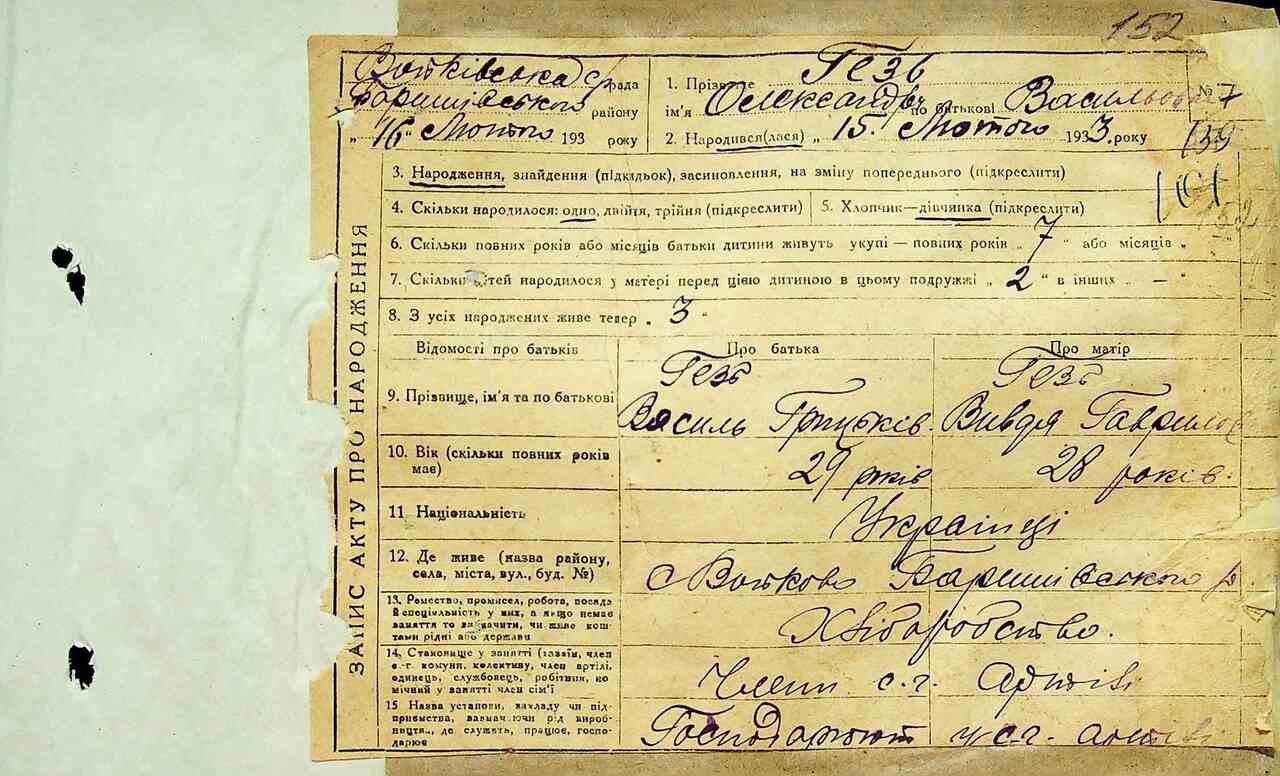 152
Вотківська с/рада
Баришівського району
„16" Лютого 193 року
1. Прізвище Гезь
ім'я Олександр по батькові Васильов
2. Народився(лася) „15. Лютого 1933. року
№ 7
139
ЗАПИС АКТУ ПРО НАРОДЖЕННЯ
3. Народження, знайдення (підкидьок), засиновлення, на зміну попереднього (підкреслити)
4. Скільки народилося: одно, двійтя, трійня (підкреслити)
5. Хлопчик—дівчинка (підкреслити)
6. Скільки повних років або місяців батьки дитини живуть укупі — повних років „ 7 " або місяців „
7. Скільки дітей народилося у матері перед цією дитиною в цьому подружжі „ 2 " в інших „ —
8. З усіх народжених живе тепер „ 3 "
Відомості про батьків
Про батька
Про матір
9. Прізвище, ім'я та по батькові
Гезь
Василь Грицьків.
Гезь
Вивдя Гаврилов
10. Вік (скільки повних років має)
29 років
28 років.
11. Національність
Українці
12. Де живе (назва району,
села, міста, вул., буд. №)
с Вотково Баришівського р.
13. Ремество, промисел, робота, посада
й спеціяльність у них, а якщо немає
заняття то зазначити, чи живе кош-
тами рідні або держави
Хліборобство.
14. Становище у занятті (хазяїн, член
с.-г. комуни, колективу, член артілі,
одинець, службовець, робітник, до
мічний у занятті член сім'ї
Члени с.г. артілі
15 Назва установи, закладу чи під-
приємства, зазначаючи рід вироб-
ництва, де служить, працює, госпо-
дарює
Господарюют у с.г. артілі